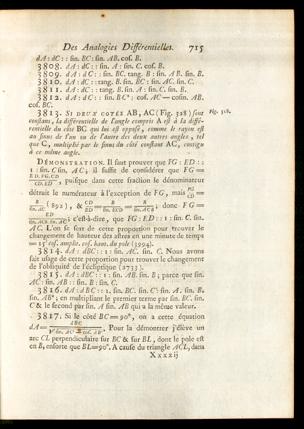 Des Analogies Différentielles. 715
dA : dC :: sin. BC : sin. AB, cos. B.
3808. dA : dC :: sin. A : sin. C. cos. B.
3809. dA : dC :: sin. BC. tang. B : sin. AB. sin. B.
3810. dA : dC :: tang. B. sin. BC : sin. AC. sin. C.
3811. dA : dC :: tang. B. sin. A : sin. C. sin. B.
3812. dA : dC :: sin. BC² : cos. AC — cosin. AB.
cos. BC.
3813. SI DEUX COTÉS AB, AC (Fig. 328) sont Fig. 328.
constans, la différentielle de l'angle compris A est à la différentielle
du côté BC qui lui est opposé, comme le rayon est
au sinus de l'un ou de l'autre des deux autres angles, tel
que C, multiplié par le sinus du côté constant AC, contigu
à ce même angle.
DÉMONSTRATION. Il faut prouver que FG : ED ::
1 : sin. C sin. AC; il suffit de considérer que FG =
puisque dans cette fraction le dénominateur
détruit le numérateur à l'exception de FG, mais
(892), & donc FG =
c'est-à-dire, que FG : ED :: 1 : sin. C. sin.
AC. L'on se sert de cette proportion pour trouver le
changement de hauteur des astres en une minute de temps
= 15′ cos. amplit. cos. haut. du pole (3994).
3814. dA : dBC :: 1 : sin. AC. sin. C. Nous avons
fait usage de cette proportion pour trouver le changement
de l'obliquité de l'écliptique (2733).
3815. dA : dBC :: 1 : sin. AB. sin. B; parce que sin.
AC : sin. AB :: sin. B : sin. C.
3816. dA : dBC :: 1. sin. BC. sin. C : sin. A. sin. B.
sin. AB²; en multipliant le premier terme par sin. BC. sin.
C & le second par sin. A sin. AB qui a la même valeur.
3817. Si le côté BC = 90°, on a cette équation
dA = Pour la démontrer j'éleve un
arc CL perpendiculaire sur BC & sur BL, dont le pole est
en B, ensorte que BL = 90°. A cause du triangle ACL, dans
Xxxxij